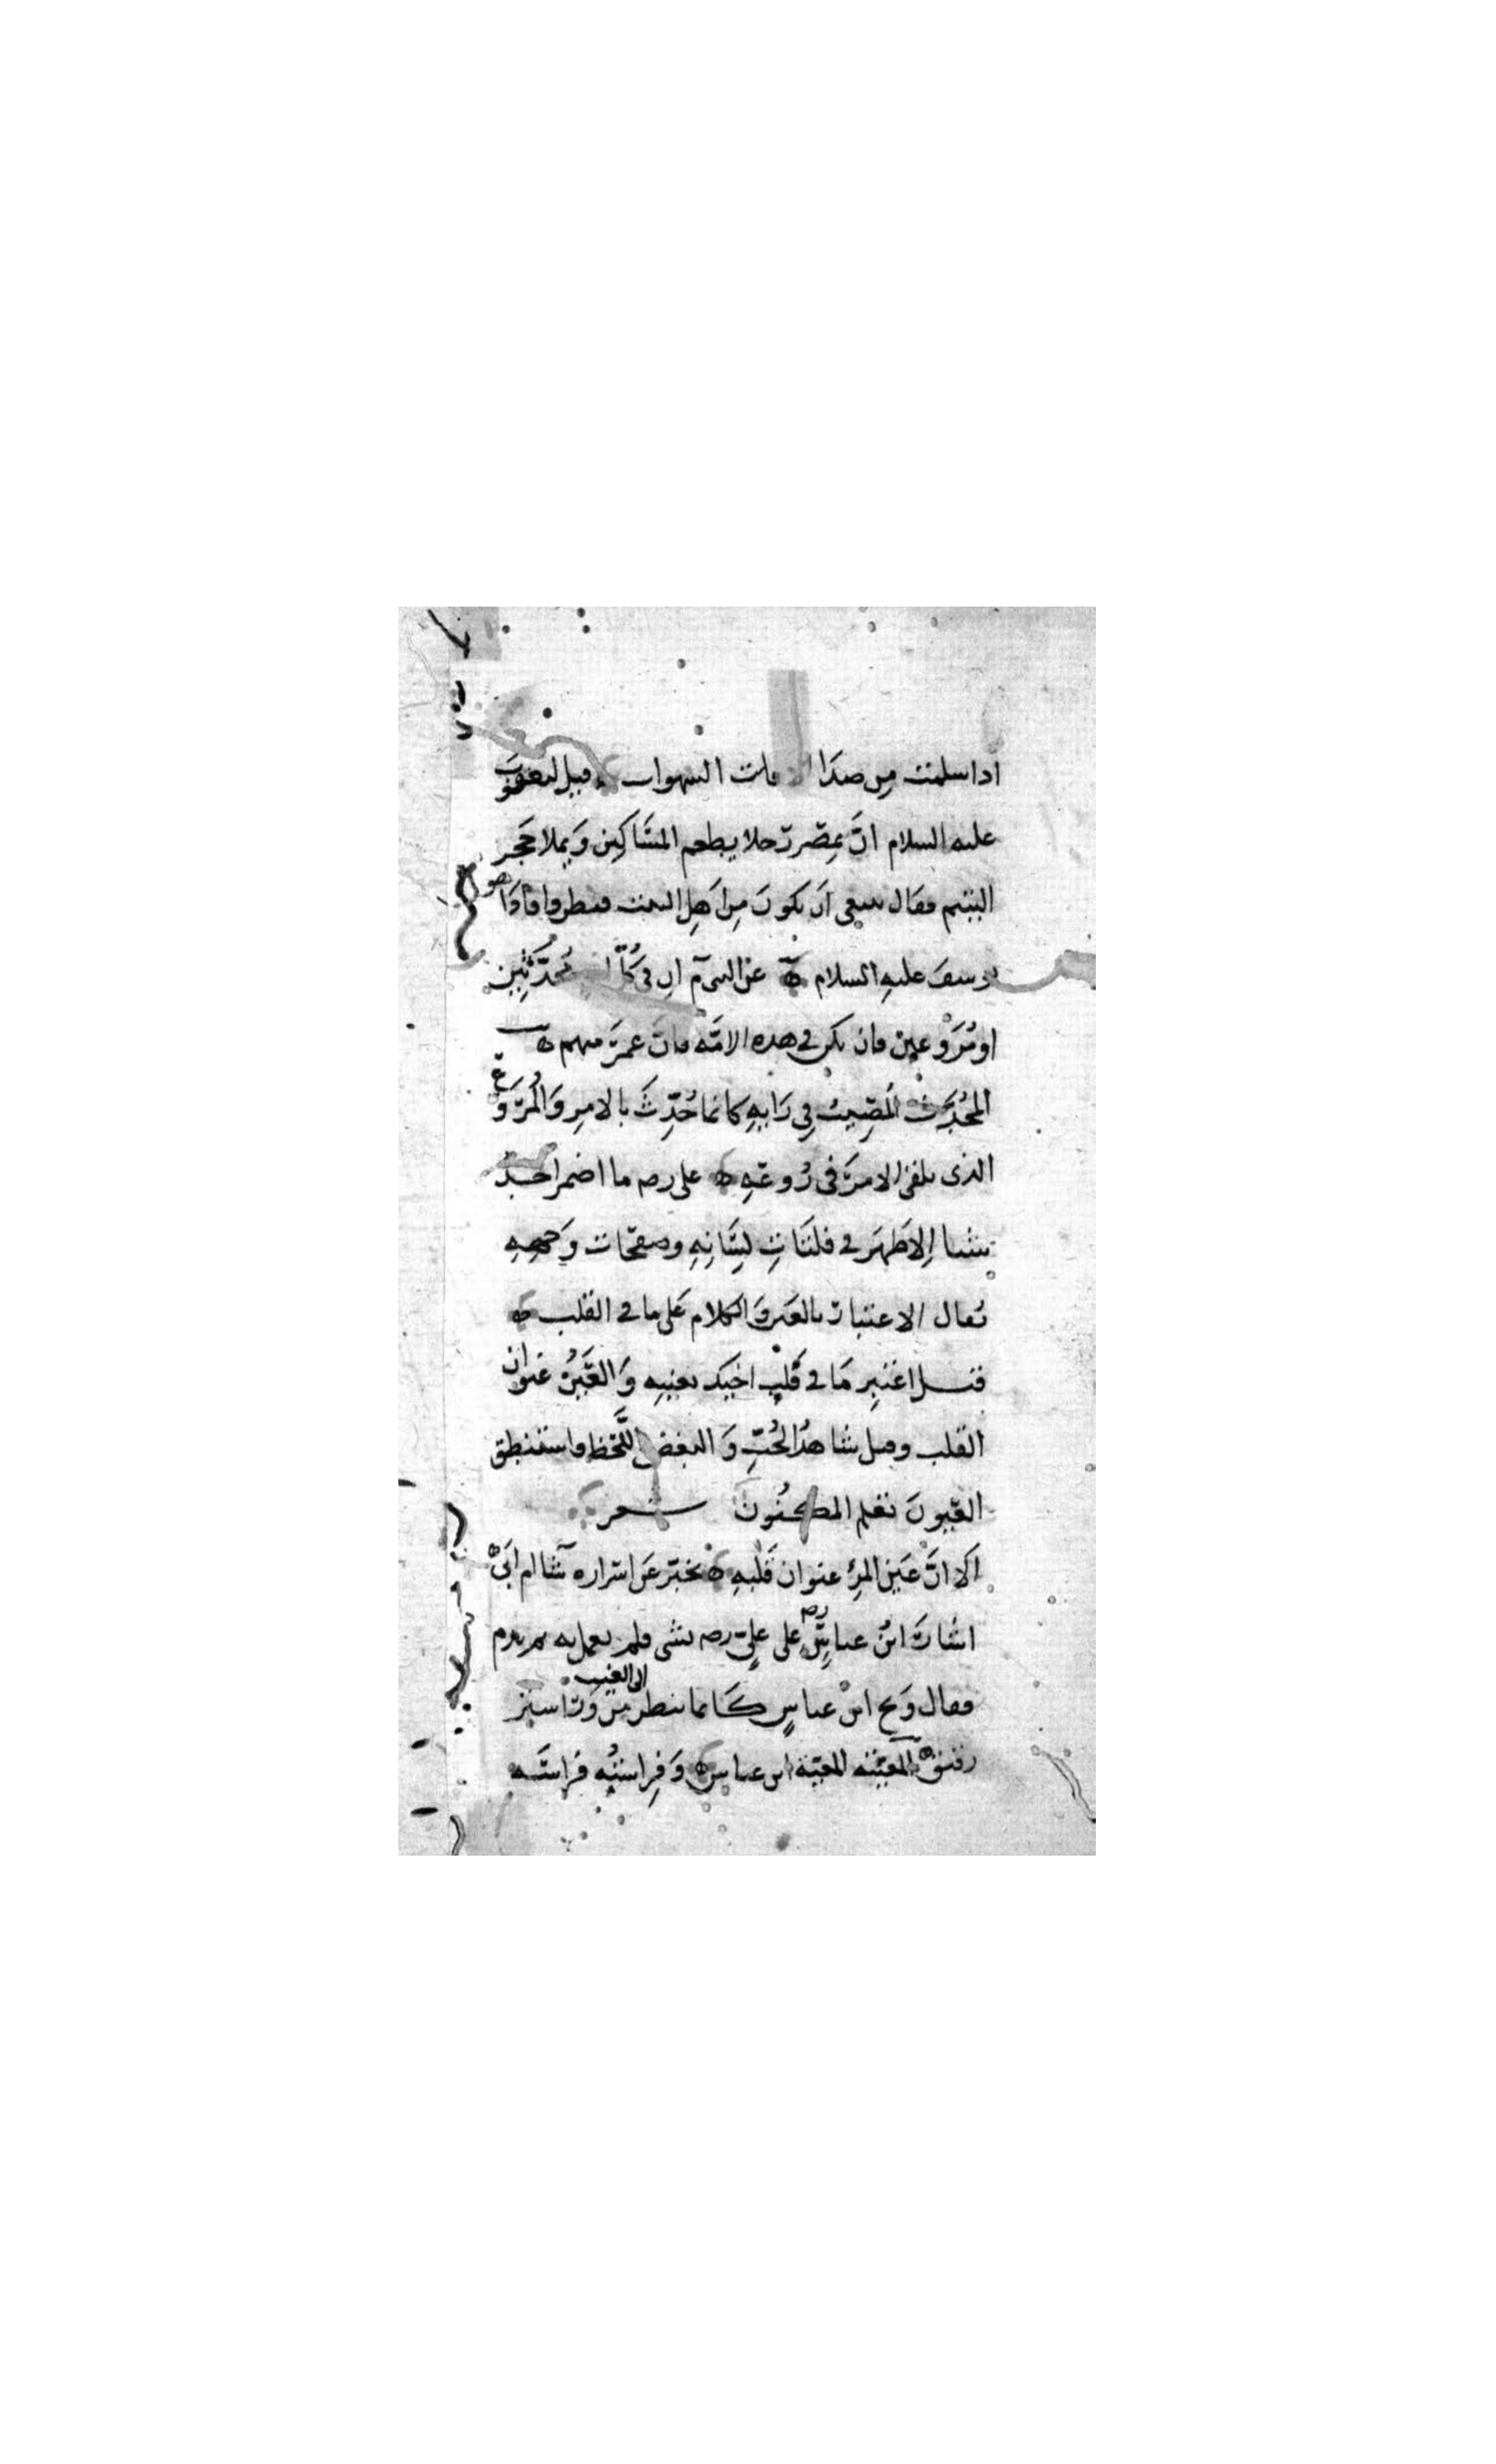 اذا سلمت من صدا الافات الشهوات ه قيل ليعقوب
عليه السلام انَّ بمِصْر رَجلا يطعم المسَاكِين وَيملا حَجر
اليتيم فقال ينبغى اَن يكونَ مِن اَهلِ البيت فنظروا فاذَا هو
يوسفَ عليهِ السلام ه عن النبى م اِن فى كُلّ محُدَّثِين
اومُرَوعين فان يكن فى هذه الامَّه فانَ عمرَ منهم ه
المحُدَّث المُصِيبُ فِى رَايهِ كانما حُدِّثَ بالامرِ وَالمُرَوَّع
الذى يلقى الامرَ فى رُوعهِ ه على رصه ما اضمر احدٌ
شيئا اِلا ظهَر فى فلتَاتِ لِسَانِهِ وصفحَات وَجههِ
يُقال الاعتبارُ بالعَينِ وَالكلام عَلى ما فى القلب ه
قيل اعتبِر مَا فى قَلبِ اخيك بعينِه وَالعَينُ عُنوان
القلب وقيل شاهدُ الحُبِّ وَالبغض اللَّحظ واستنطِق
العيونَ تعلم المكنُونَ شعر
اَلا انَّ عَين المرءِ عنوان قَلبهِ ه تخبّر عَن اسراره شآ ام ابَى ه
اشارَ ابنُ عباسٍ رصه على علىّ رصه بشى فلم يعمل به ثم ندم
فقال وَيح ابن عباسٍ كَانما ينظر الى الغيب مِن وَرآ سِتر
رقيق ه المعيّنه المعيّنة ابن عباس ه وَفِراستُه فراسَه